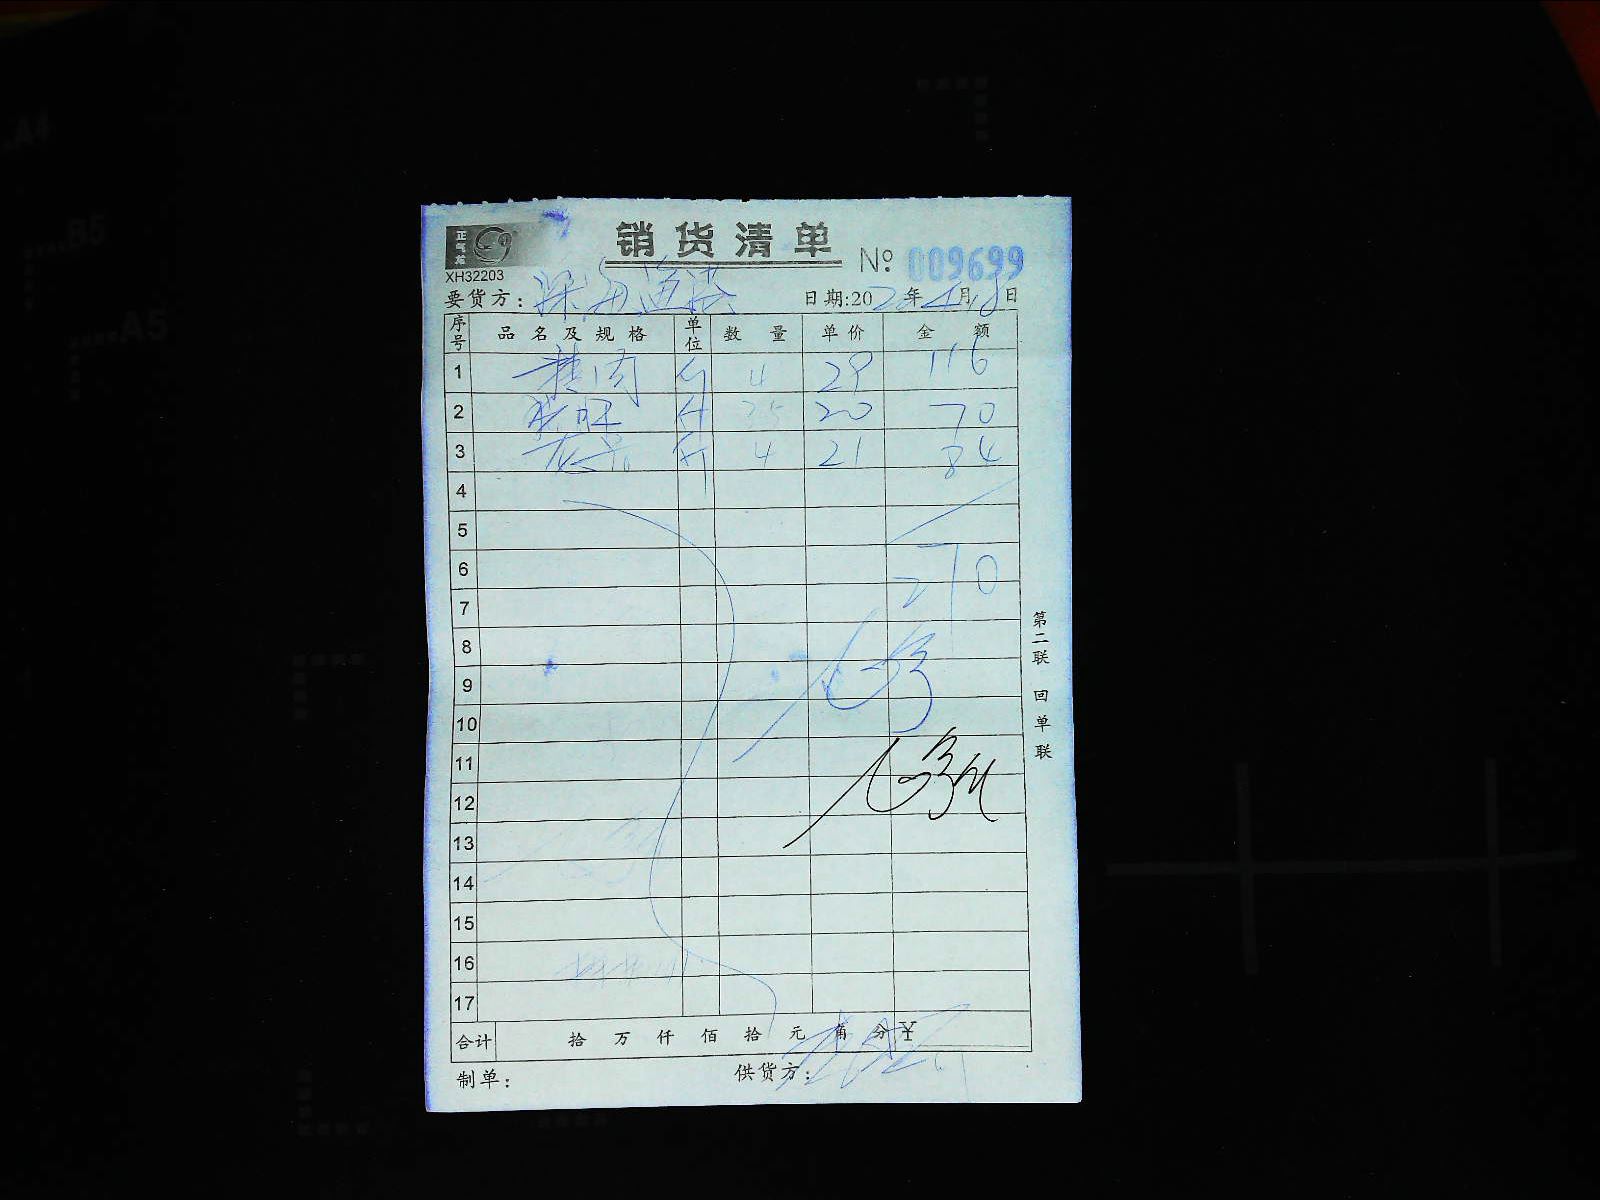 正气花
XH32203
销货清单 № 009699
要货方: 深 日期:202 年 4月18日
序号 品名及规格 单位 数量 单价 金额
1 肉 斤 4 29 116
2 斤 20 70
3 斤 4 21 84
4
5
6
270
7
8
9
10
11
12
13
14
15
16
17
合计 拾 万 仟 佰 拾 元 角 分 ¥
制单: 供货方:
第二联 回单联
A4
B5
A5